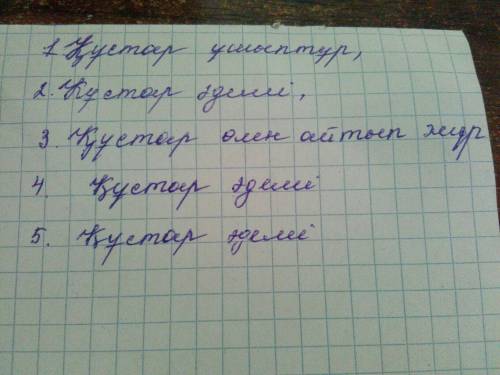 1. Құстар ушыптур,
2. Құстар әдемі,
3. Құстар өлен айтып жүр
4. Құстар әдемі
5. Құстар әдемі